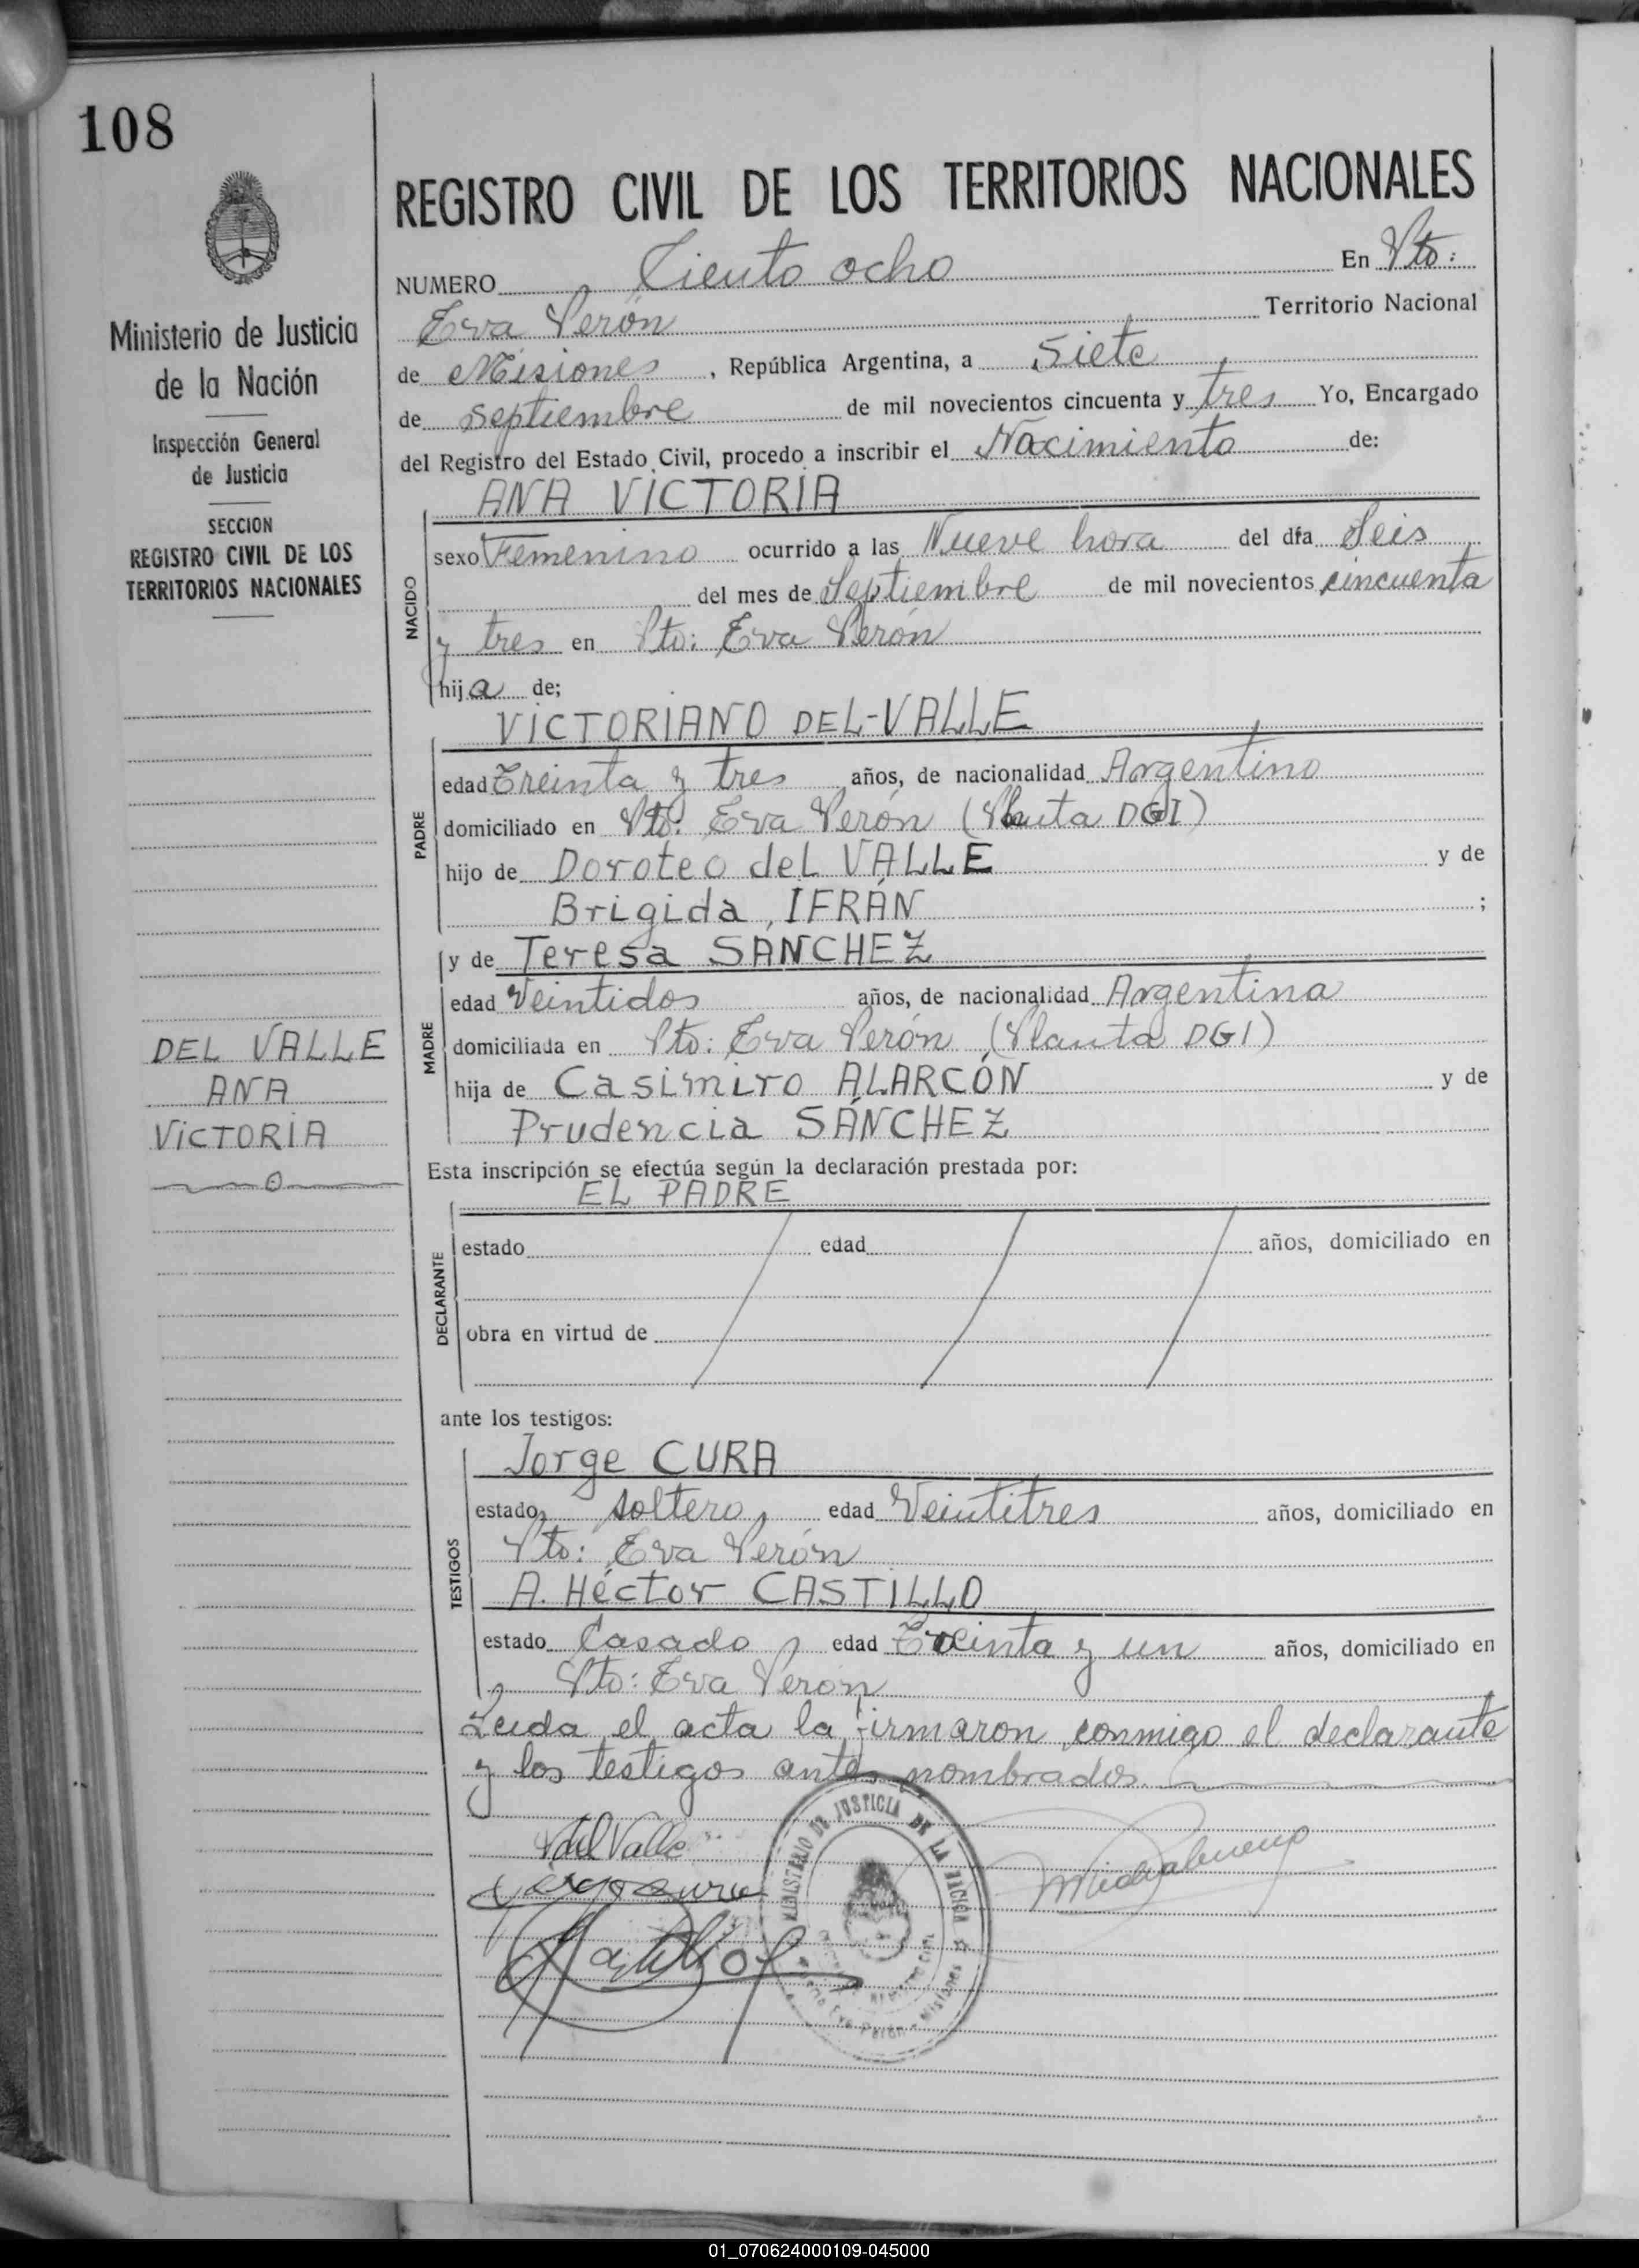 108
Ministerio de Justicia
de la Nación
Inspección General
de Justicia
SECCION
REGISTRO CIVIL DE LOS
TERRITORIOS NACIONALES
DEL VALLE
ANA
VICTORIA
REGISTRO CIVIL DE LOS TERRITORIOS NACIONALES
NUMERO Ciento ocho En Pto:
Eva Perón Territorio Nacional
de Misiones, República Argentina, a siete
de septiembre de mil novecientos cincuenta y tres Yo, Encargado
del Registro del Estado Civil, procedo a inscribir el Nacimiento de:
ANA VICTORIA
NACIDO
sexo Femenino ocurrido a las Nueve hora del día Seis
del mes de Septiembre de mil novecientos cincuenta
y tres en Pto: Eva Perón
hija de;
VICTORIANO DEL-VALLE
PADRE
edad Treinta y tres años, de nacionalidad Argentino
domiciliado en Pto: Eva Perón (Planta DGI)
hijo de Doroteo del VALLE y de
Brigida IFRÁN ;
y de Teresa SÁNCHEZ
MADRE
edad Veintidos años, de nacionalidad Argentina
domiciliada en Pto: Eva Perón (Planta DGI)
hija de Casimiro ALARCÓN y de
Prudencia SÁNCHEZ
Esta inscripción se efectúa según la declaración prestada por:
EL PADRE
DECLARANTE
estado edad años, domiciliado en
obra en virtud de
ante los testigos:
Jorge CURA
TESTIGOS
estado, soltero, edad Veintitres años, domiciliado en
Pto: Eva Perón
A. Héctor CASTILLO
estado Casado, edad Treinta y un años, domiciliado en
Pto: Eva Perón
Leida el acta la firmaron conmigo el declarante
y los testigos antes nombrados.
V del Valle
MINISTERIO DE JUSTICIA DE LA NACION
Eva Perón - Misiones
01_070624000109-045000